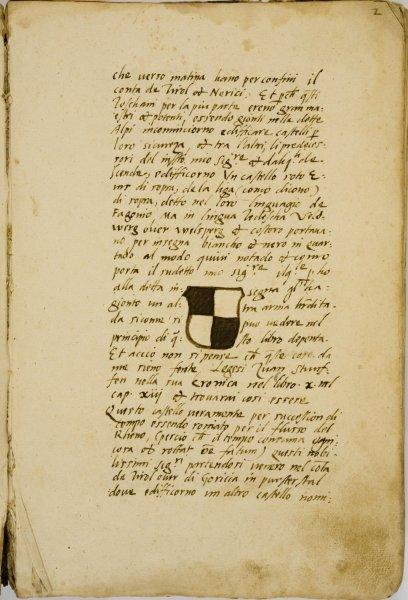 2
che verso matina hano per confini il
conta de Tirol et Norici. Et pch q̃sti
Toschani per la piu parte ereno gran ma-
estri et potenti, essendo gionti nelle dette
Alpi incominciorno edificare castelli p
loro sicureza, et tra l'altri, li predeces-
sori del mio sig.re et
scende, edifficorno Un castello soto
di sopra, de la liga (como dicono)
di sopra, detto nel loro linguagio de
Fagonio, Ma in lingua Tedescha
over Welsperg et costoro portava-
no, per insegna biancho et nero in quar-
tado al modo quivi notado et como
porta il sudetto mio sig.re
alla ditta insegna
gionto un altra arma
da sicome si puo vedere nel
principio di q.sto libro depenta.
Et acciò non si pense ch q̃ste cose da
me sieno finte, Legesi Juan
fen nella sua Cronica nel libro x nel
cap. xiii et trovarai cosi essere
Questo castello veramente per succession di
tempo essendo roinato per il flusso del
Rheno, (percio ch il tempo consuma ogni
cosa et Fatum) questi nobi-
lissimi sig.ri partendosi venero nel cotà
de Tirol over di Goricia in purstertal
dove edifficorno un altro castello nomi-